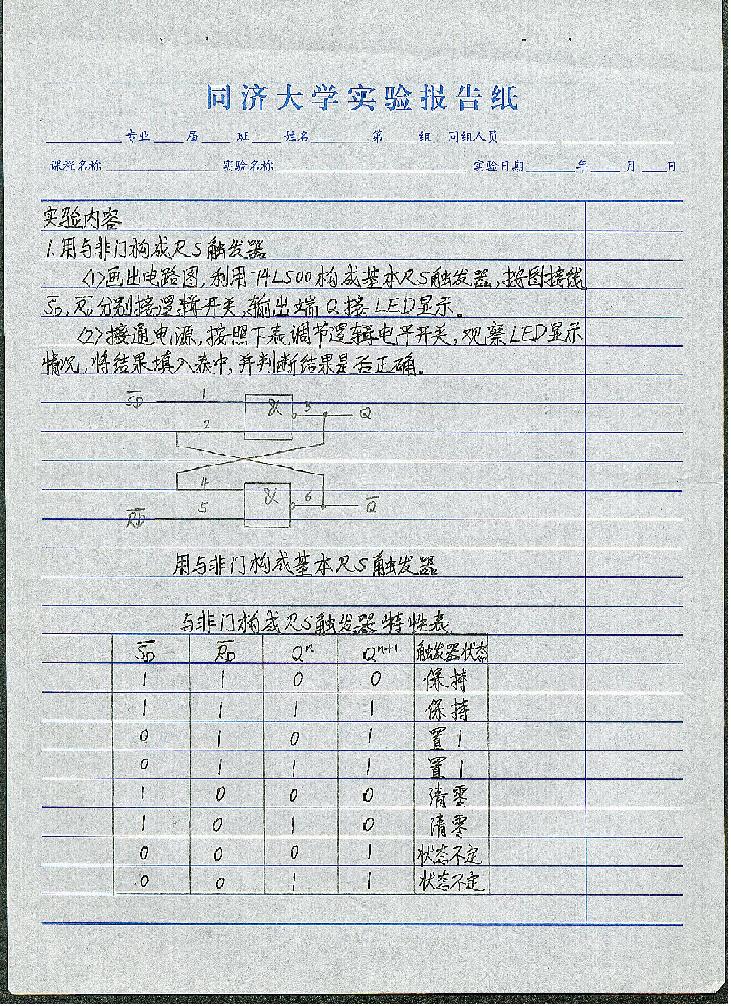 同济大学实验报告纸
专业 届 班 姓名 第 组 同组人员
课程名称 实验名称 实验日期 年 月 日
实验内容
1.用与非门构成RS触发器
(1)画出电路图,利用74LS00构成基本RS触发器,按图接线
S̅D,R̅D分别接逻辑开关,输出端Q接LED显示。
(2)接通电源,按照下表调节逻辑电平开关,观察LED显示
情况,将结果填入表中,并判断结果是否正确。
S̅D 1 & 3 Q
2
4
R̅D 5 & 6 Q̅
用与非门构成基本RS触发器
与非门构成RS触发器特性表
S̅D R̅D Qⁿ Qⁿ⁺¹ 触发器状态
1 1 0 0 保持
1 1 1 1 保持
0 1 0 1 置1
0 1 1 1 置1
1 0 0 0 清零
1 0 1 0 清零
0 0 0 1 状态不定
0 0 1 1 状态不定